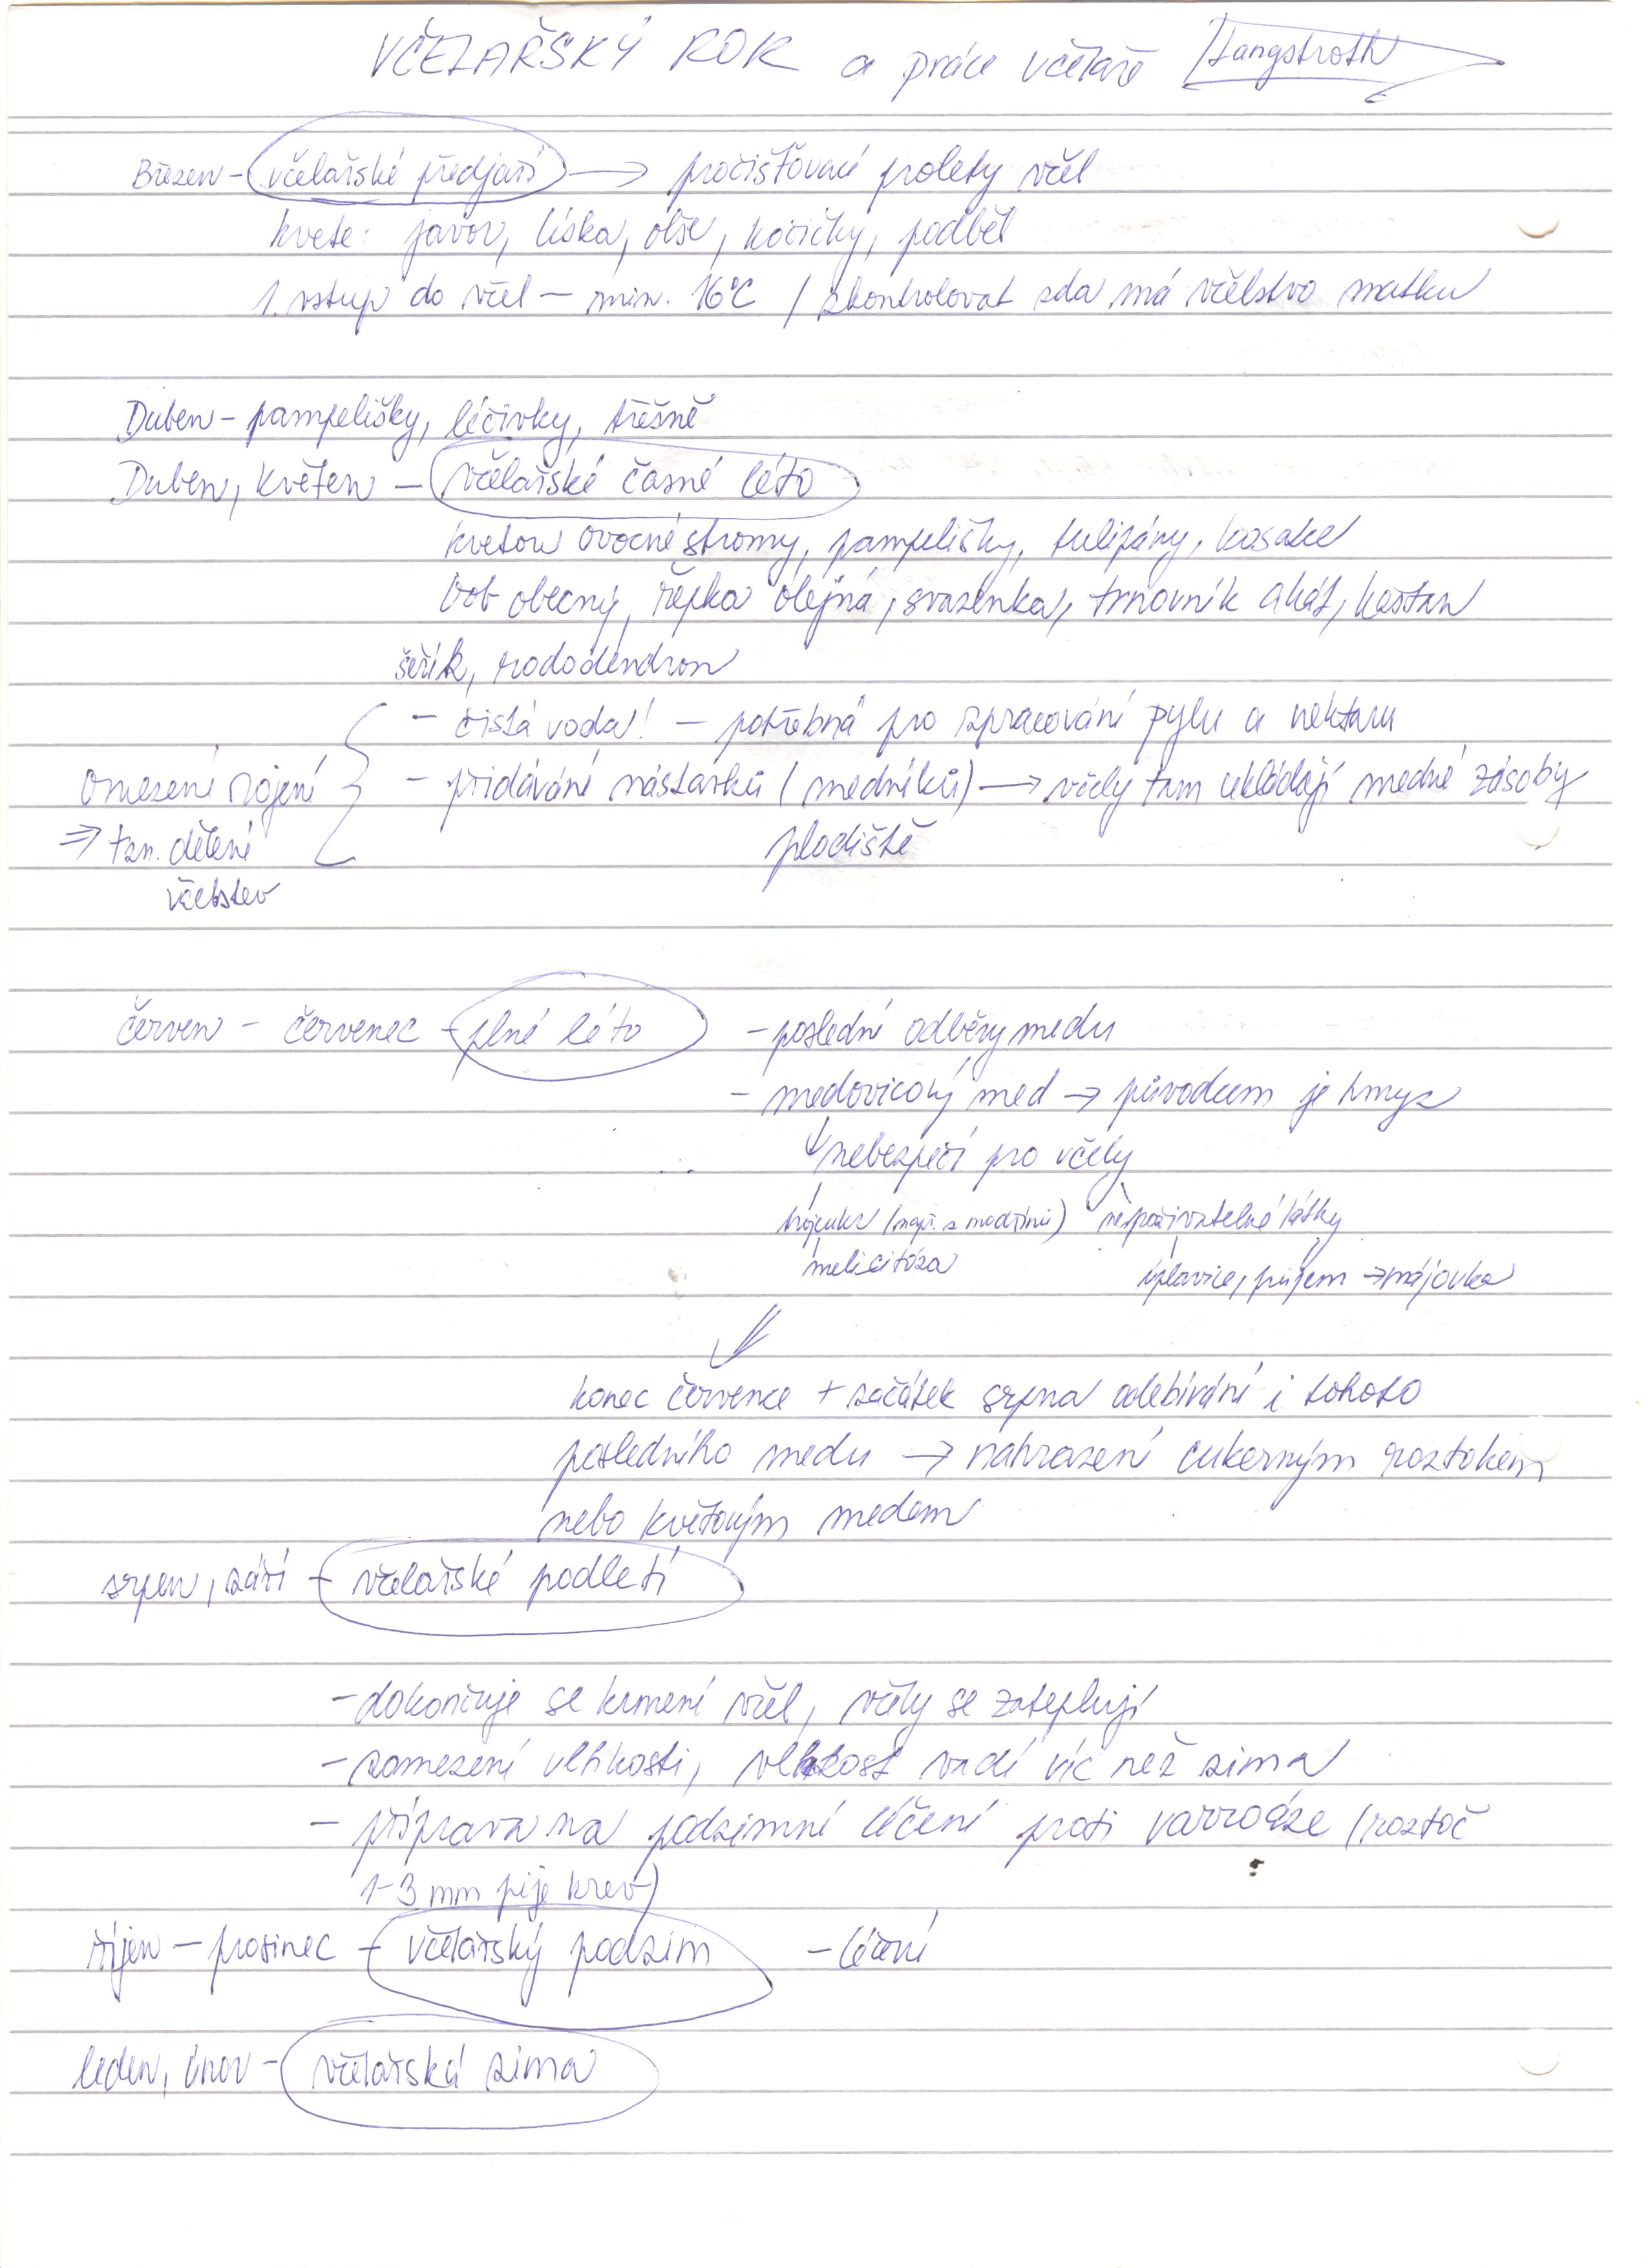 VČELAŘSKÝ ROK a práce včelaře Langstroth
Březen - včelařské předjaří → pročišťovací prolety včel
kvete: javor, líska, olše, kočičky, podběl
1. vstup do včel - min. 16°C / zkontrolovat zda má včelstvo matku
Duben - pampelišky, léčivky, třešně
Duben, květen - včelařské časné léto
kvetou ovocné stromy, pampelišky, tulipány, kosatce
bob obecný, řepka olejná, svazenka, trnovník akát, kaštan
šeřík, rododendron
- čistá voda! - potřebná pro zpracování pylu a nektaru
omezení rojení - přidávání nástavků (medníků) → včely tam ukládají medné zásoby
⇒ tzn. dělení plodiště
včelstev
červen - červenec - plné léto - poslední odběry medu
- medovicový med → původcem je hmyz
↓ nebezpečí pro včely
trojcukr (např. z modřínu) nespotřivatelné látky
melicitóza úplavice, průjem → májovka
konec července + začátek srpna odebírání i tohoto
posledního medu → nahrazení cukerným roztokem
nebo květovým medem
srpen, září - včelařské podletí
- dokončuje se krmení včel, včely se zateplují
- zamezení vlhkosti, vlhkost vadí víc než zima
- příprava na podzimní léčení proti varroáze (roztoč
1-3 mm pije krev)
říjen - prosinec - včelařský podzim - léčení
leden, únor - včelařská zima